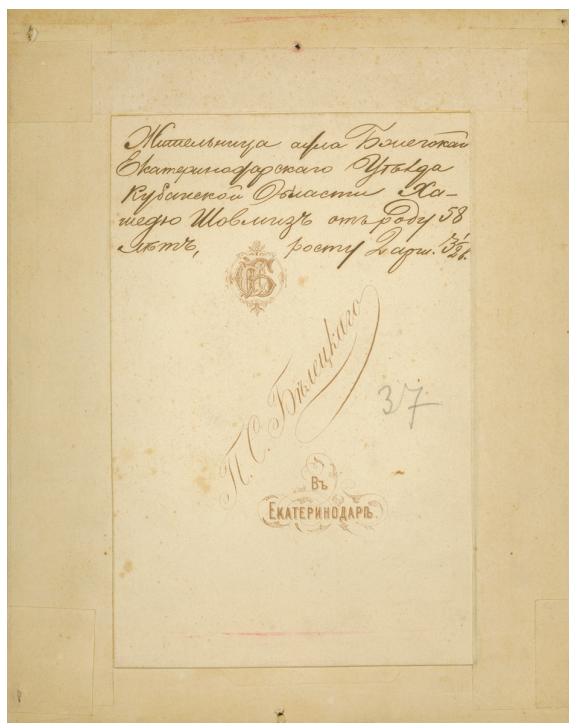 Жительница аула Бжегокай
Екатеринодарскаго Уѣзда
Кубанской Области Ха-
шедю Шовмизъ отъ роду 58
лѣтъ, росту 2 арш. 3 1/2 в.
П. С. Бѣлецкаго
37
Въ
ЕКАТЕРИНОДАРѢ.